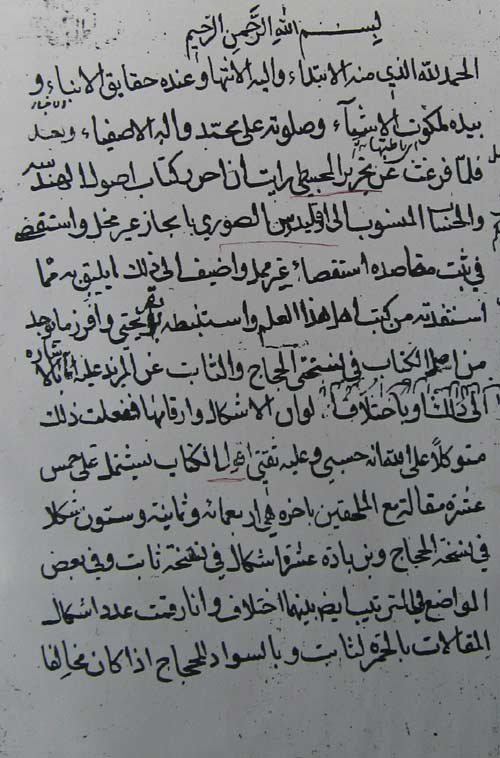 بسم الله الرحمن الرحيم
الحمد لله الذي منه الابتداء واليه الانتهاء وعنده حقايق الانباء و
بيده ملكوت الاشياء وصلوته على محمد واله الاصفياء وبعد
فلما فرغت عن تحرير المجسطي رايت ان احرر كتاب اصول الهندسه
والحساب المنسوب الى اقليدس الصوري بايجاز غير مخل واستقصى
في ثبت مقاصده استقصاء غير ممل واضيف الى ذلك ما يليق به مما
استفدته من كتب اهل هذا العلم واستنبطته بقريحتي وافرز ما يوجد
من اصل الكتاب في نسختي الحجاج والثابت عن المزيد عليه اما بالاشاره
الى ذلك او باختلاف الوان الاشكال وارقامها ففعلت ذلك
متوكلا على الله انه حسبي وعليه ثقتي اقول الكتاب يشتمل على خمس
عشرة مقالة مع الملحقتين باخره وهي اربعمائة وثمانية وستون شكلا
في نسخة الحجاج وبزيادة عشرة اشكال في نسخة ثابت وفي بعض
المواضع في الترتيب ايضا بينهما اختلاف وانا رقمت عدد اشكال
المقالات بالحمرة لثابت وبالسواد للحجاج اذا كان مخالفا